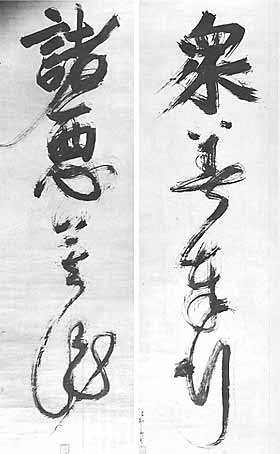 衆善奉行
諸悪莫作